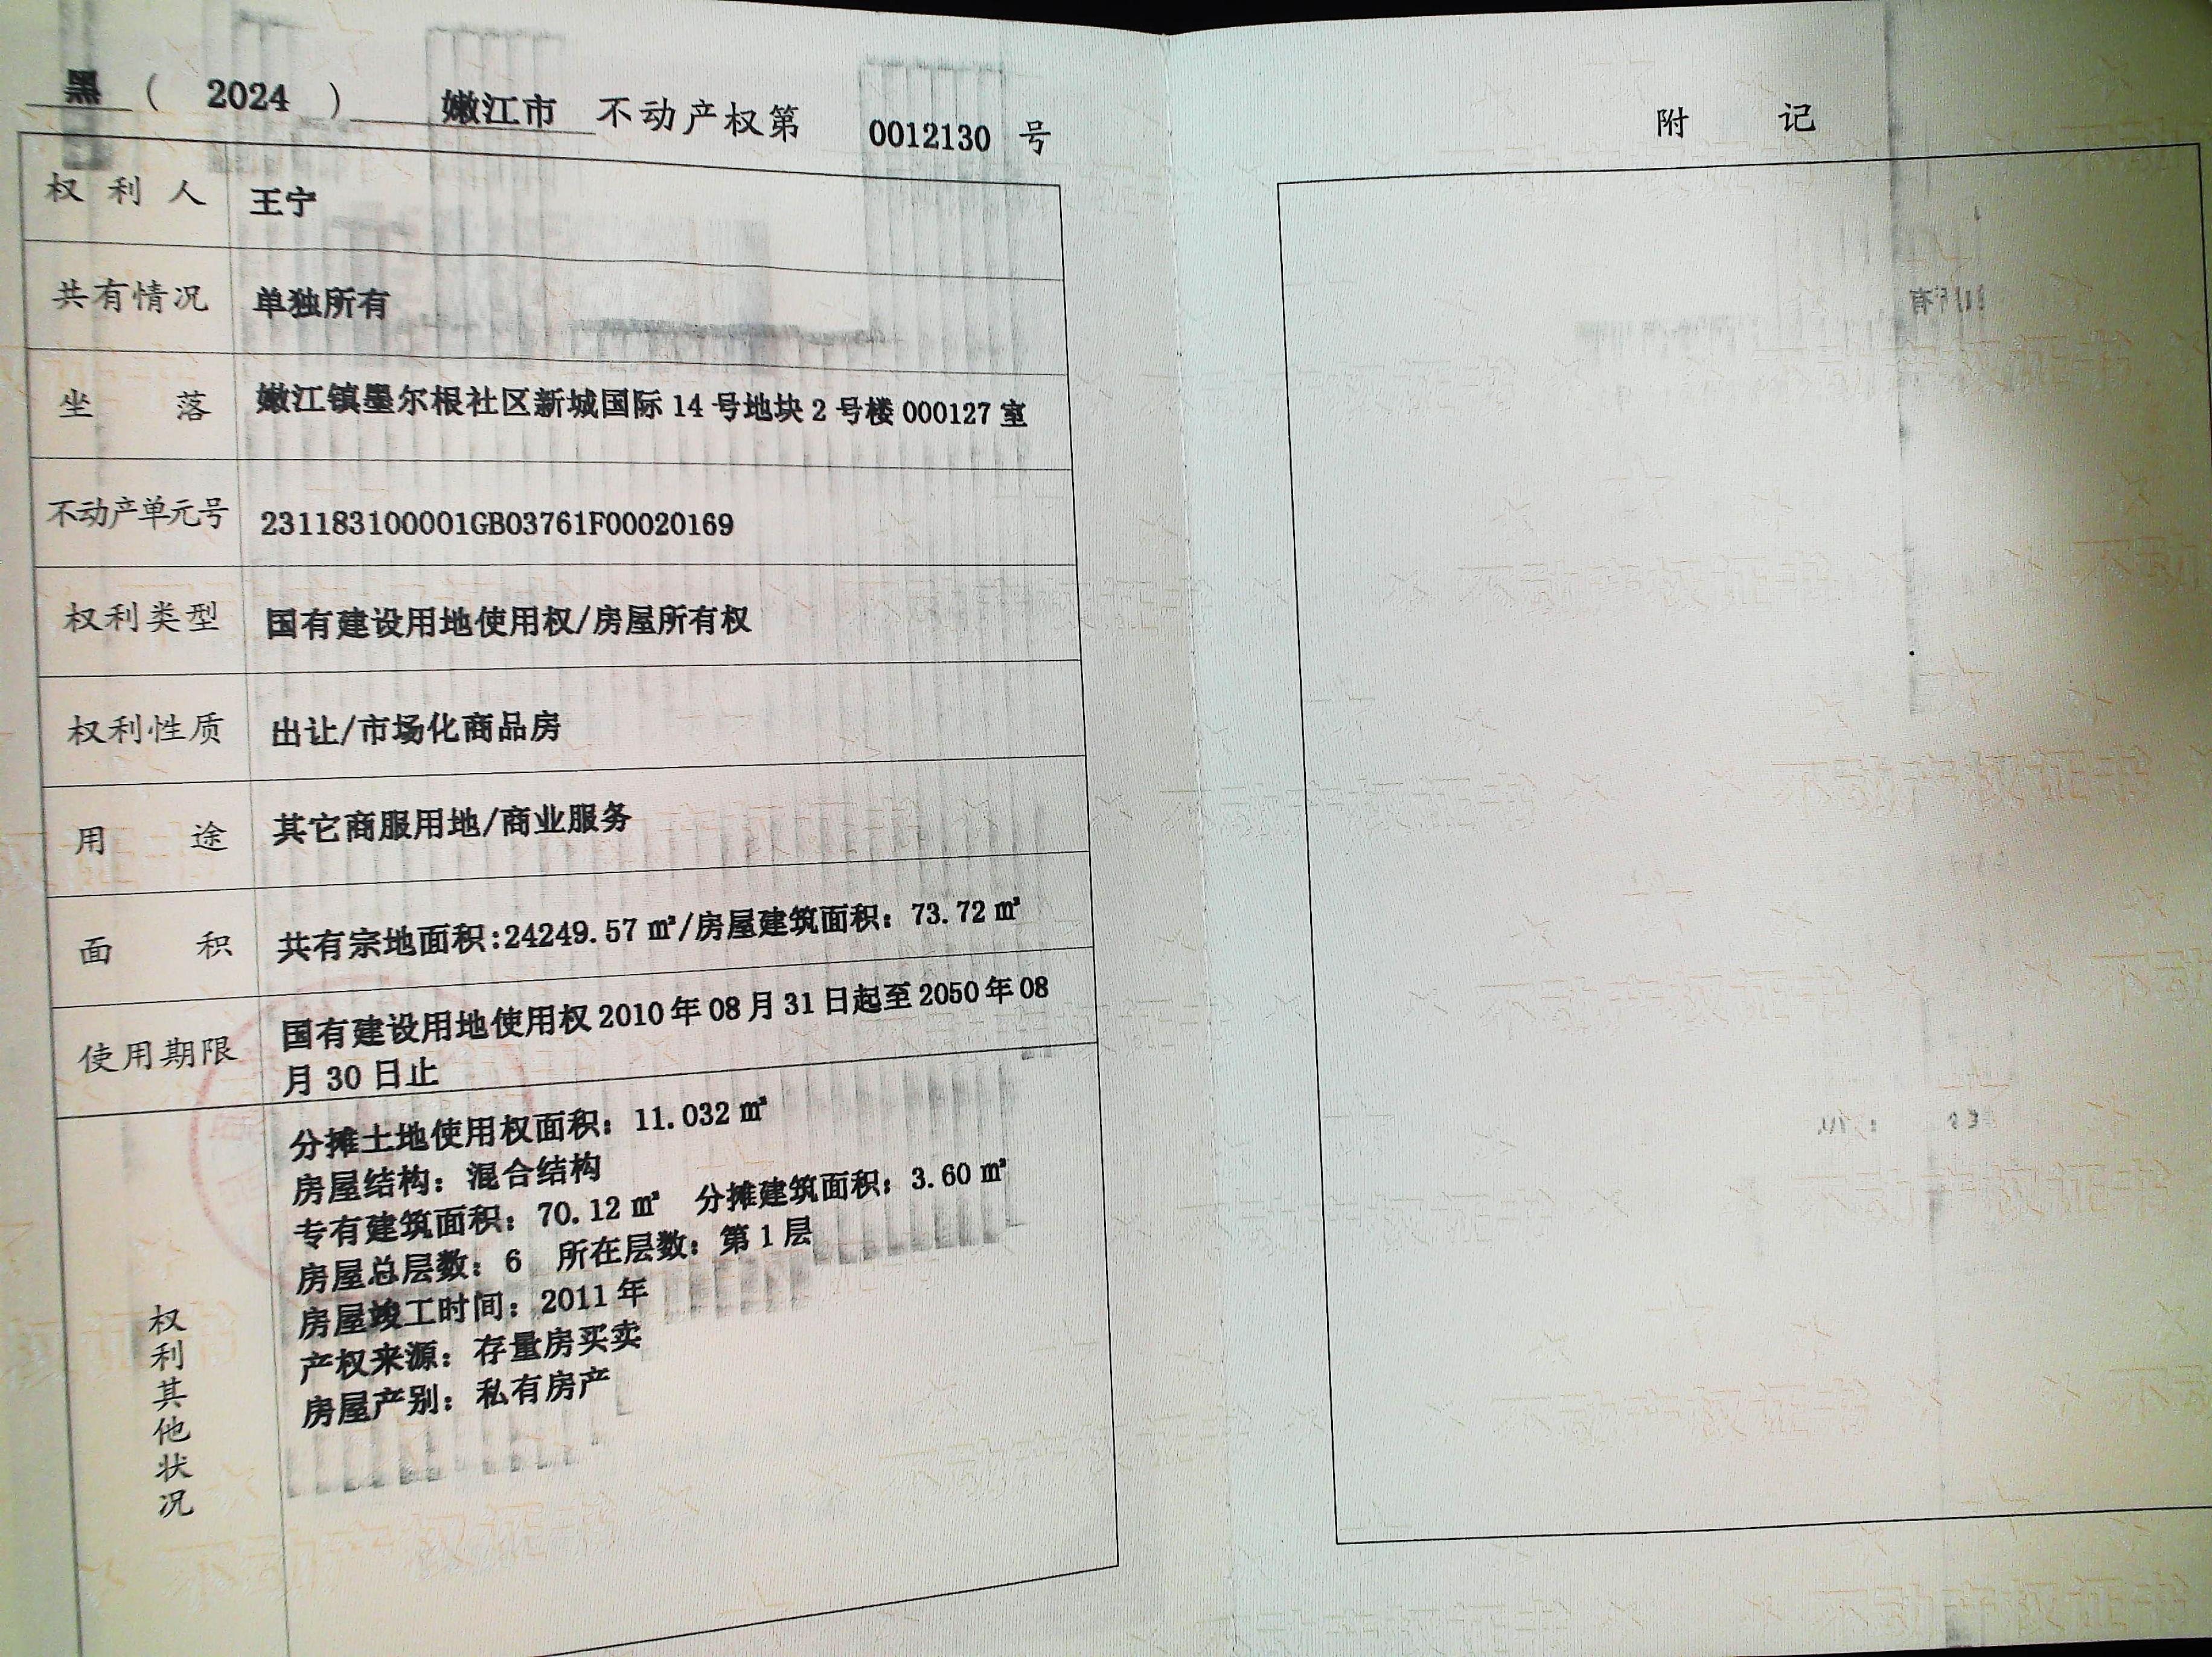 黑（ 2024 ） 嫩江市 不动产权第 0012130 号
权利人 王宁
共有情况 单独所有
坐落 嫩江镇墨尔根社区新城国际 14 号地块 2 号楼 000127 室
不动产单元号 231183100001GB03761F00020169
权利类型 国有建设用地使用权/房屋所有权
权利性质 出让/市场化商品房
用途 其它商服用地/商业服务
面积 共有宗地面积:24249.57 ㎡/房屋建筑面积：73.72 ㎡
使用期限 国有建设用地使用权 2010 年 08 月 31 日起至 2050 年 08
月 30 日止
权利其他状况
分摊土地使用权面积：11.032 ㎡
房屋结构：混合结构
专有建筑面积：70.12 ㎡ 分摊建筑面积：3.60 ㎡
房屋总层数：6 所在层数：第 1 层
房屋竣工时间：2011 年
产权来源：存量房买卖
房屋产别：私有房产
附记